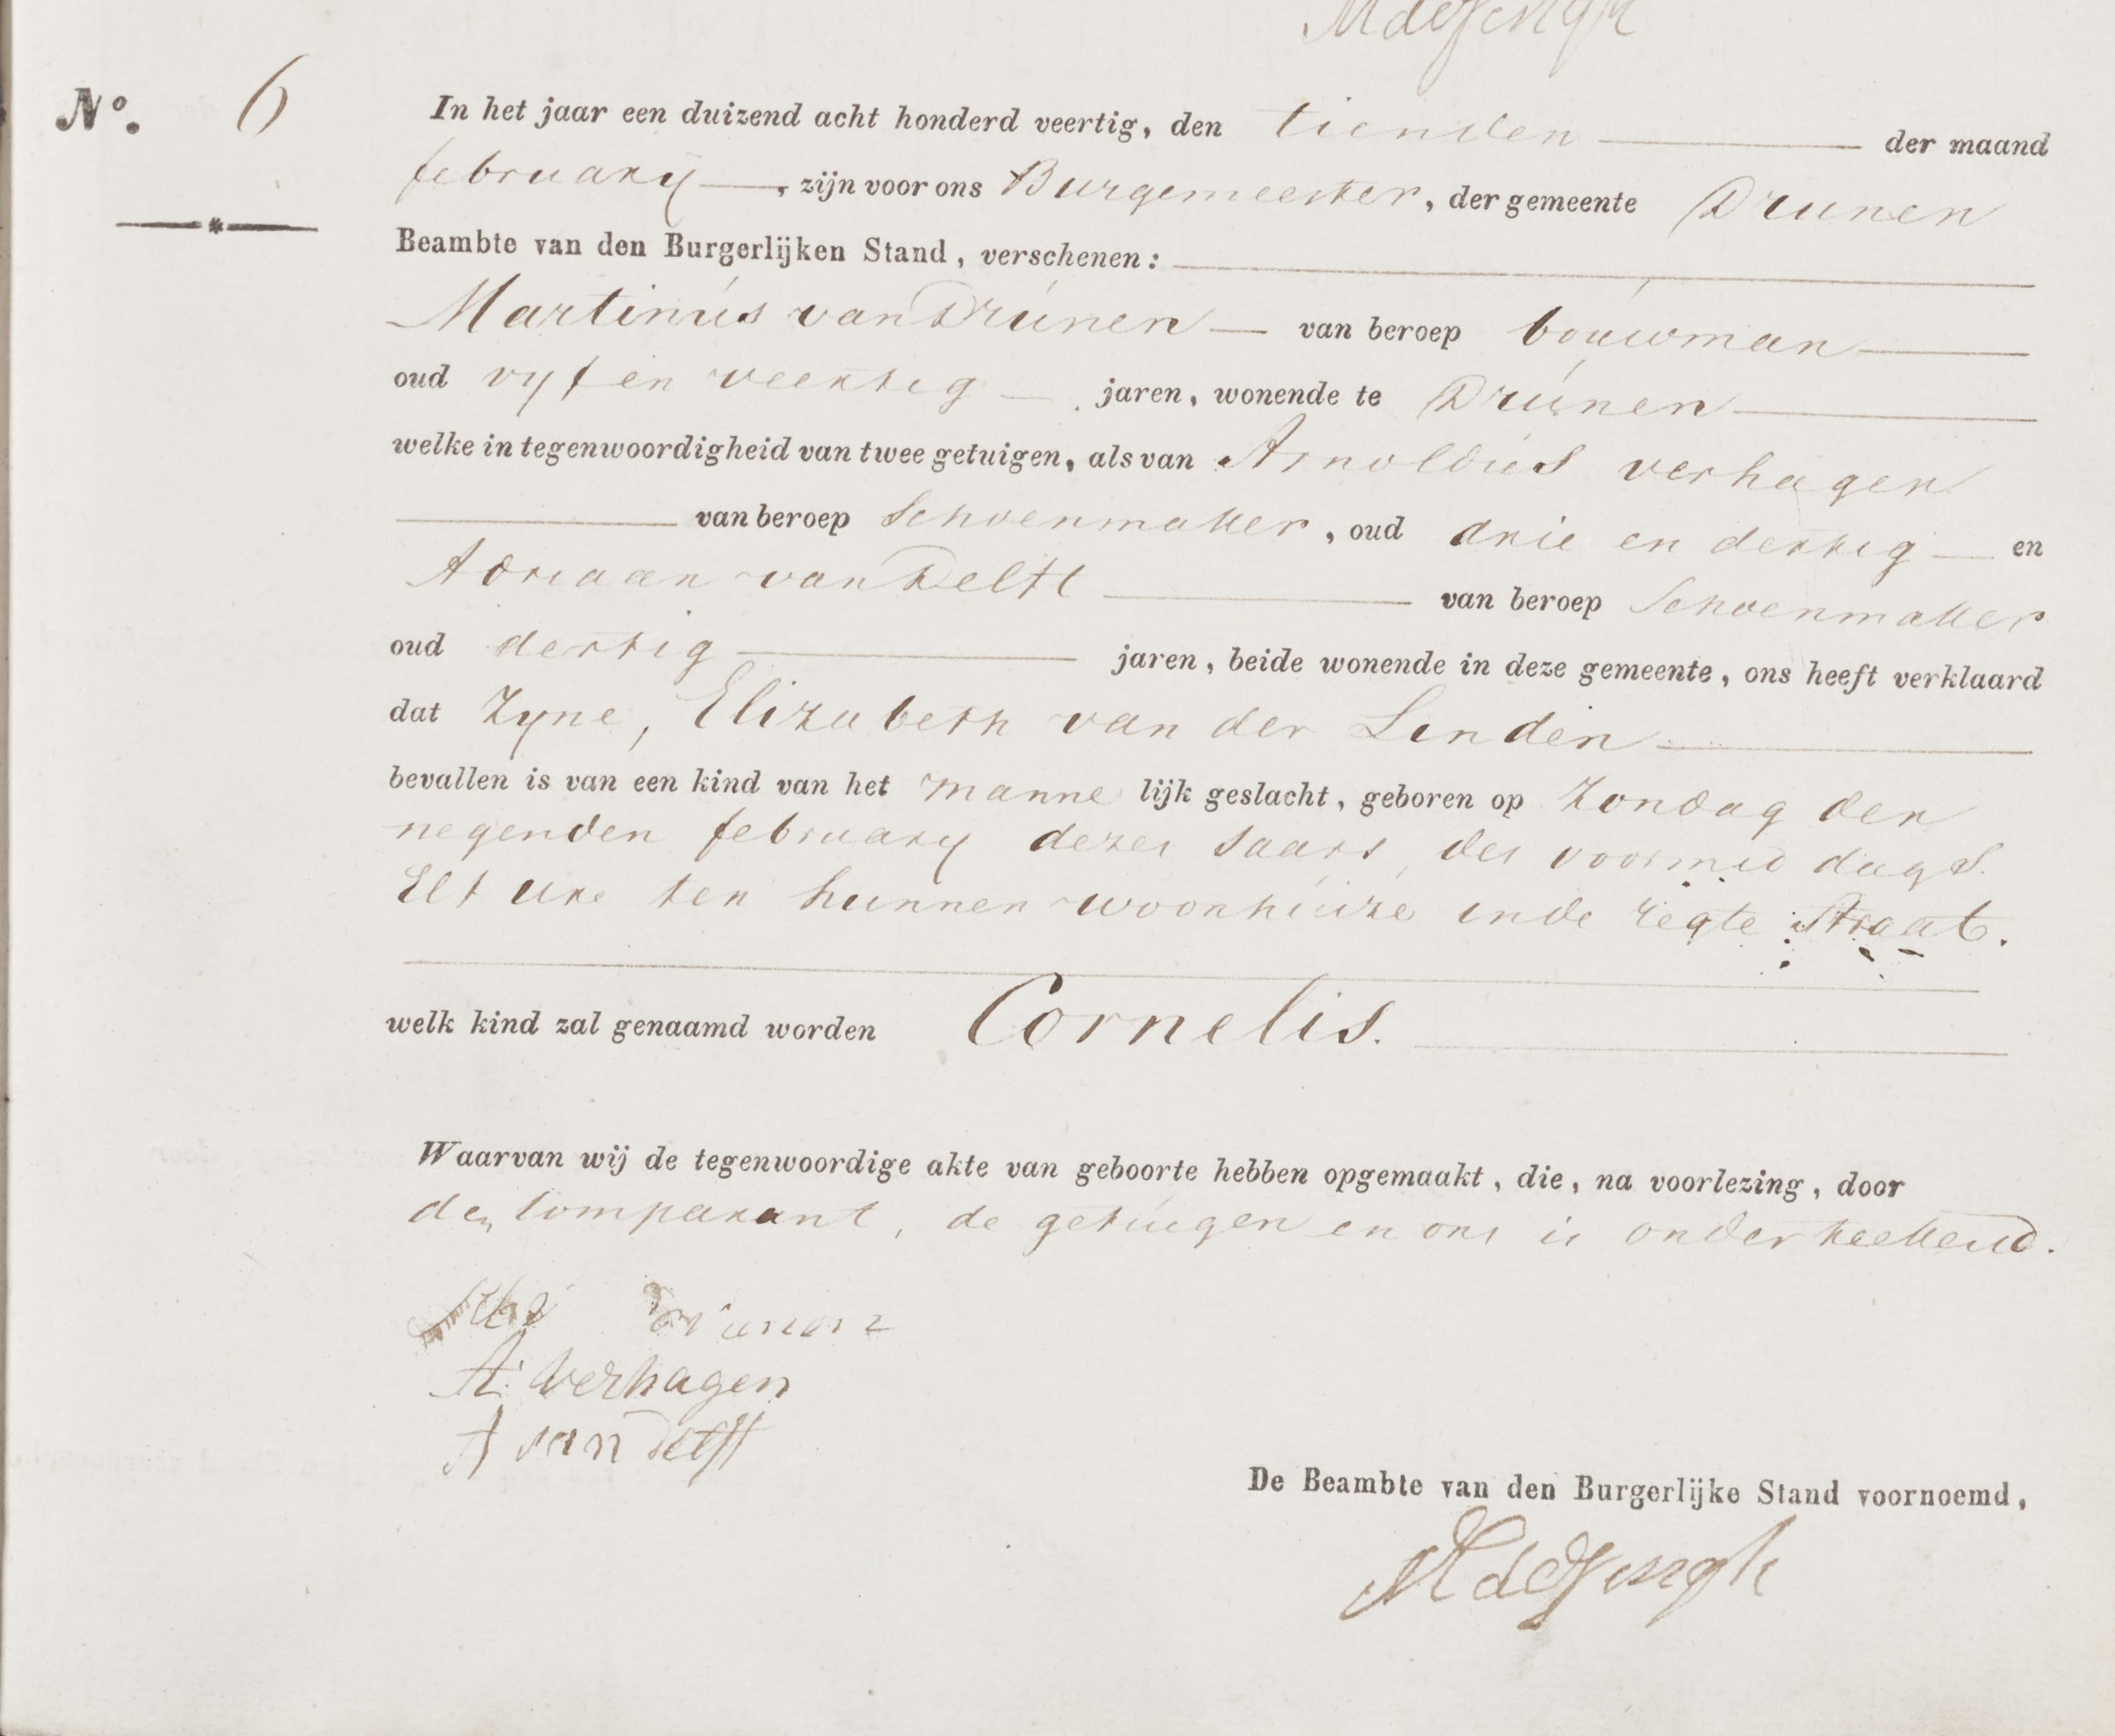 No. 6
In het jaar een duizend acht honderd veertig, den tienden der maand
february, zijn voor ons Burgemeester, der gemeente Drunen
Beambte van den Burgerlijken Stand, verschenen:
Martinus van Drunen van beroep bouwman
oud vyf en veertig jaren, wonende te Drunen
welke in tegenwoordigheid van twee getuigen, als van Arnoldus verhagen
van beroep Schoenmaker, oud drie en dertig en
Adriaan van Delft van beroep Schoenmaker
oud dertig jaren, beide wonende in deze gemeente, ons heeft verklaard
dat Zyne, Elizabeth van der Linden
bevallen is van een kind van het manne lijk geslacht, geboren op Zondag den
negenden february dezes Jaars, des voormid dags
Elf ure ten hunnen woonhuize in de regte Straat.
welk kind zal genaamd worden Cornelis.
Waarvan wij de tegenwoordige akte van geboorte hebben opgemaakt, die, na voorlezing, door
den Comparant, de getuigen en ons is onderteekend.
Drunen
A: Verhagen
A van Delft
De Beambte van den Burgerlijke Stand voornoemd,